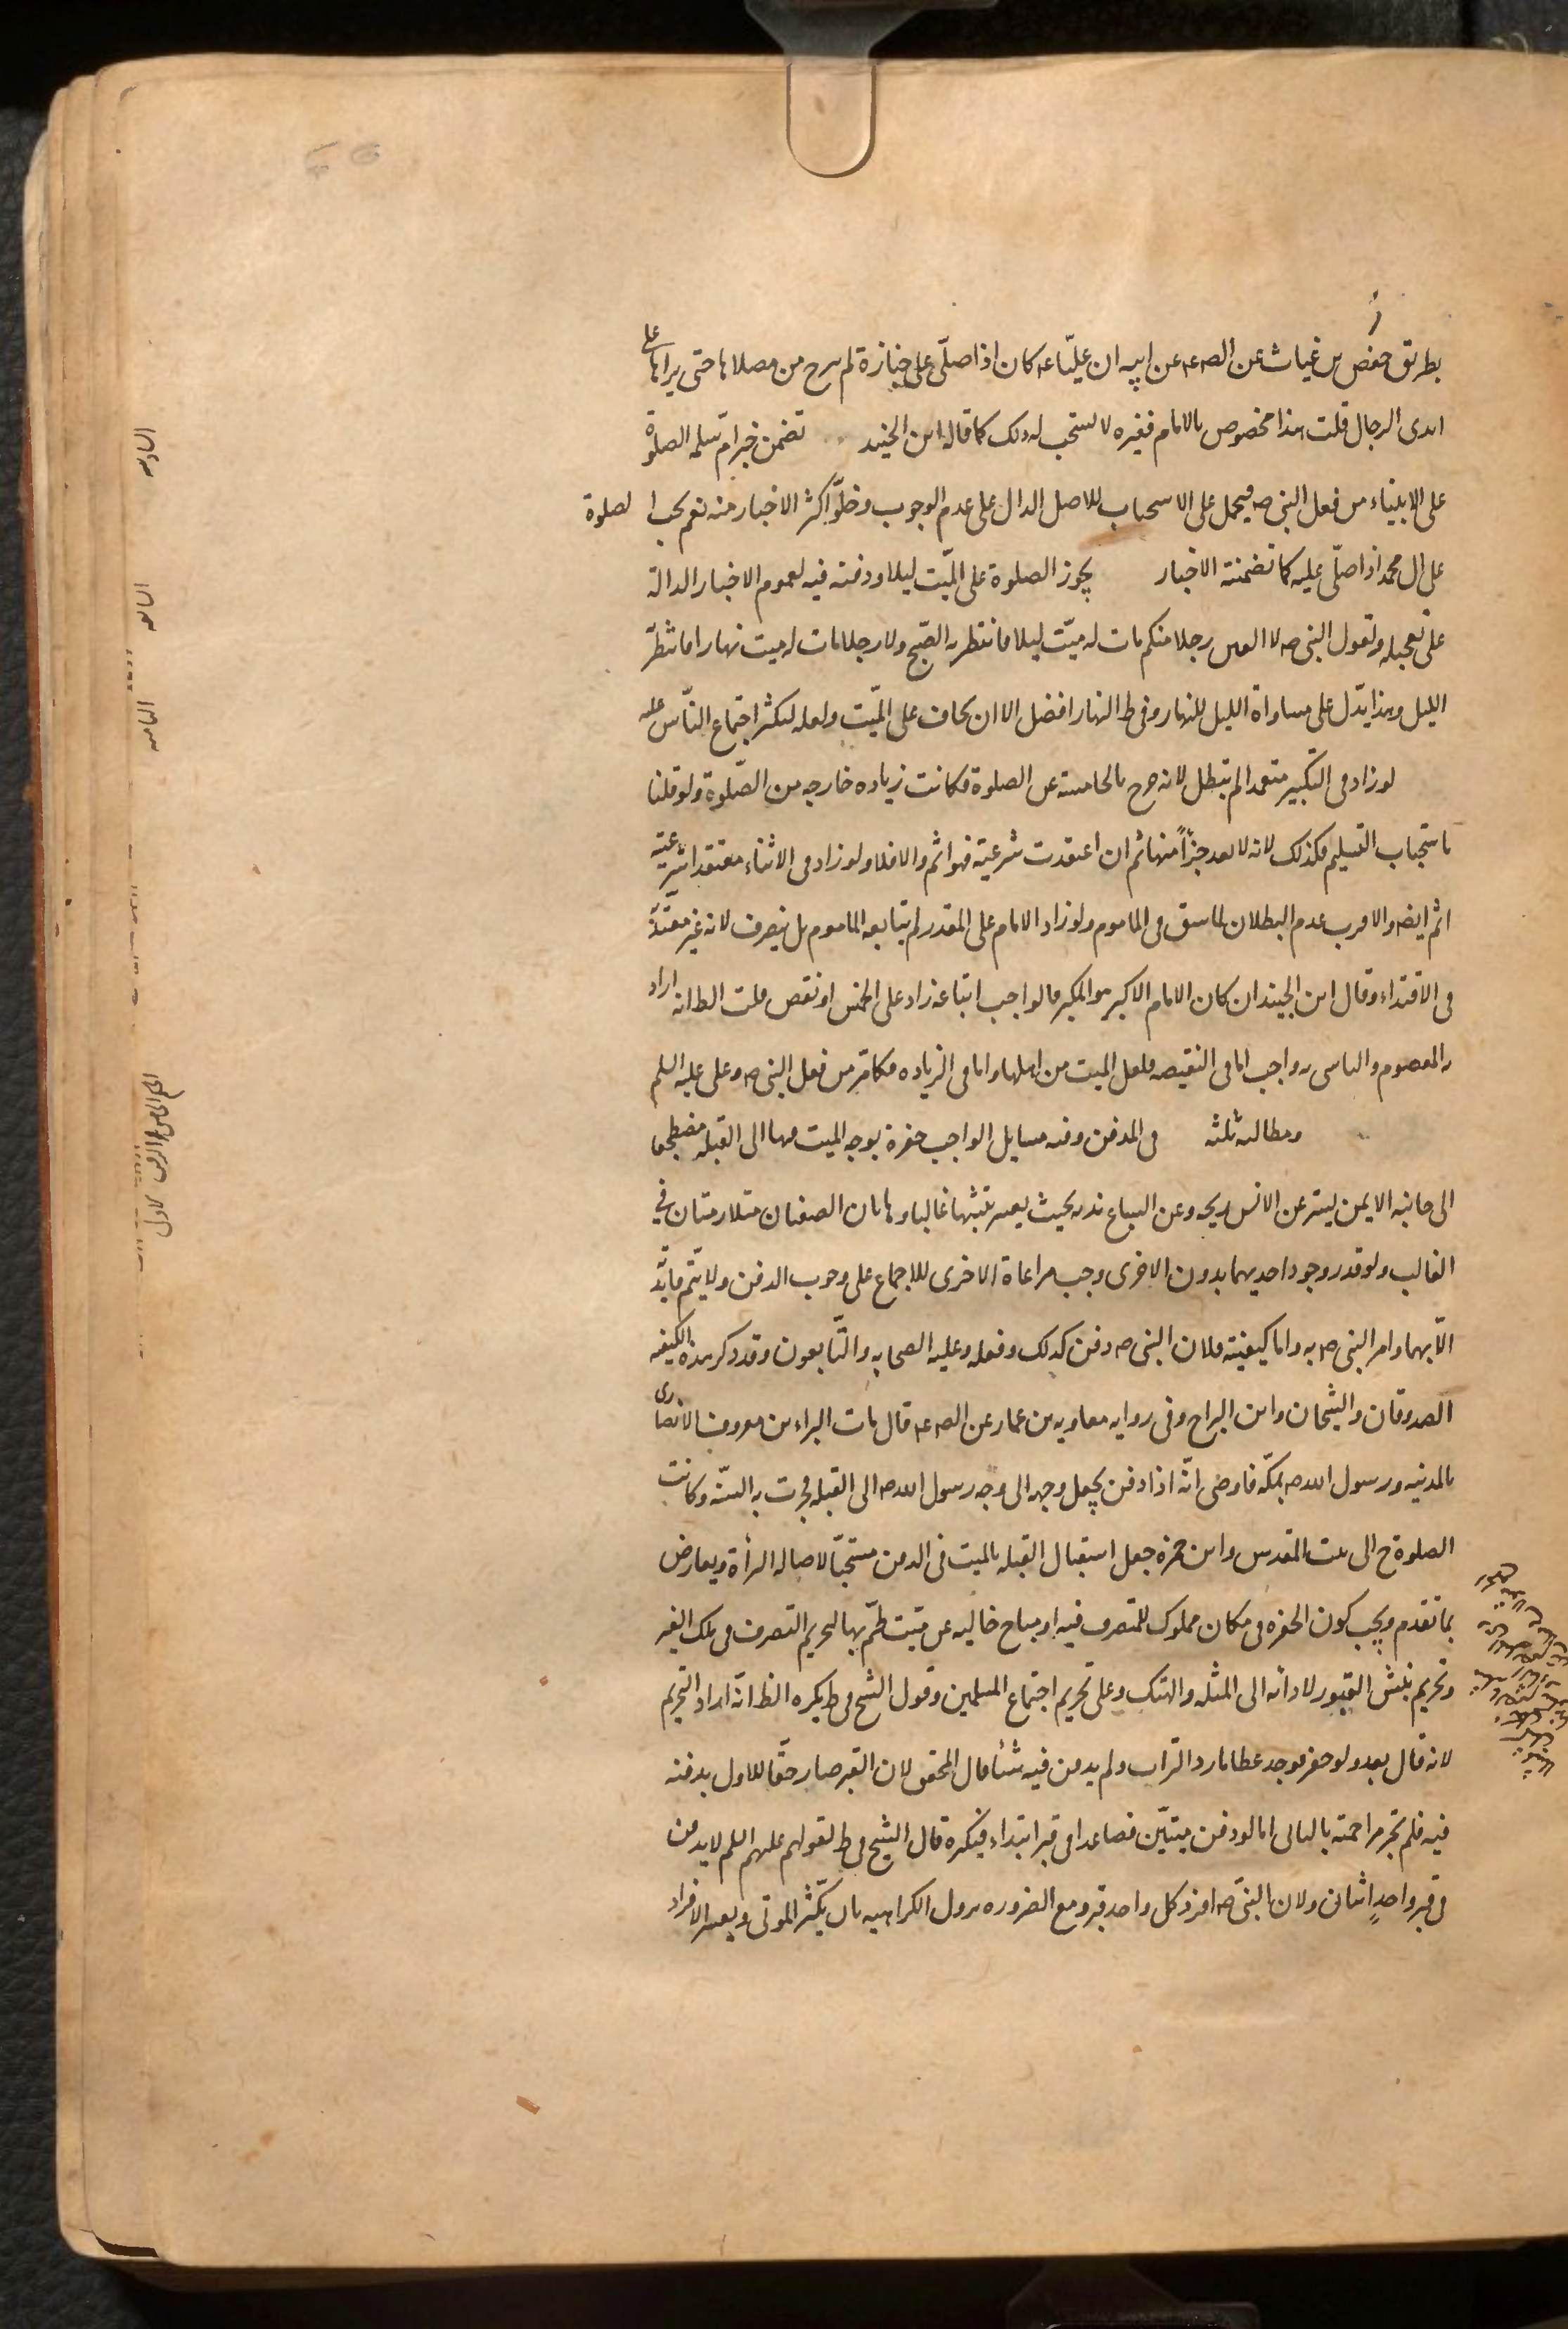 بطريق حفص بن غياث عن الص ع عن ابيه ان عليّا ع كان اذا صلّى على جنازة لم يبرح من مصلاها حتى يراها على
ايدى الرجال قلت هذا مخصوص بالامام فغيره لا يستحب له ذلك كما قاله ابن الجنيد تضمن خبر ام سلمه الصلوة
على الانبياء من فعل النبى ص فيحمل على الاستحباب للاصل الدال على عدم الوجوب وخلوّ اكثر الاخبار منه نعم يجب الصلوة
على ال محمد اذا صلّى عليه كما تضمنته الاخبار يجوز الصلوة على الميّت ليلا ودفنه فيه لعموم الاخبار الدالة
على تعجيله ولقول النبى ص لا الفين رجلا منكم مات له ميّت ليلا فانتظر به الصّبح ولا رجلا مات له ميت نهارا فانتظر
الليل وهذا يدّل على مساواة الليل للنهار وفى ط النهار افضل الا ان يخاف على الميّت ولعله لكثر اجتماع النّاس عليه
لو زاد فى التكبير متعمدا لم تبطل لانه خرج بالخامسة عن الصلوة فكانت زياده خارجه من الصّلوة ولو قلنا
باستحباب التسليم فكذلك لانه لا يعد جزاً منها ثم ان اعتقدت شرعيته فهو اثم والا فلا ولو زاد فى الاثناء معتقدا شرعيته
اثم ايضه والاقرب عدم البطلان لما سبق فى الماموم ولو زاد الامام على المقدر لم يتابعه الماموم بل ينصرف لانه غير معتدّ
فى الاقتداء وقال ابن الجنيد ان كان الامام الاكبر هو المكبر فالواجب اتباعه زاد على الخمس او نقص قلت الظ انه اراد
به المعصوم والتاسى به واجب اما فى النقيصه فلعل الميت من اهلها واما فى الزياده فكما مّر من فعل النبى ص وعلى عليه السلم
ومطالبه ثلثه فى المدفن وفيه مسايل الواجب حفرة يوجه الميت فيها الى القبله مضطجعا
الى جانبه الايمن يستر عن الانس ريحه وعن السباع بدنه بحيث يعسر نبشها غالبا وهاتان الصفتان متلازمتان فى
الغالب ولو قدر وجود احديهما بدون الاخرى وجب مراعاة الاخرى للاجماع على وجوب الدفن ولا يتّم فايدته
الّا بهما وامر النبى ص به واما كيفيته فلان النبى ص دفن كذلك وفعله وعليه الصحابه والتّابعون وقد ذكر هذه الكيفيه
الصدوقان والشيخان وابن البراج وفى روايه معاويه بن عمار عن الص ع قال مات البراء بن معروف الانصارى
بالمدينه ورسول الله ص بمكّه فاوصى انّه اذا دفن يجعل وجهه الى وجه رسول الله ص الى القبله فجرت به السنّه وكانت
الصلوة ح الى بيت المقدس وابن حمزه جعل استقبال القبله بالميت فى الدفن مستحبّا لاصاله البرأة ويعارض
بما تقدم ويجب كون الحفره فى مكان مملوك للمتصرف فيه او مباح خاليه عن ميّت طمّ بها لتحريم التصرف فى ملك الغير
وتحريم نبش القبور لادائه الى المثله والهتك وعلى تحريم اجتماع المسلمين وقول الشيخ فى ط يكره الظ انّه اراد التحريم
لانه قال بعد ولو حفر فوجد عظاما رد التراب ولم يدفن فيه شئا قال المحقق لان القبر صار حقّا للاول بدفنه
فيه فلم تجز مزاحمته بالثانى اما لو دفن ميّتين فصاعدا فى قبر ابتداء فيكره قال الشيخ فى ط لقولهم عليهم السلم لا يدفن
فى قبر واحدٍ اثنان ولان النبى ص افرد كل واحد بقبر ومع الضروره يزول الكراهيه بان يكثر الموتى ويعسر الافراد
السادسه
السابعه
الثامنه
الحكم الخامس الدفن